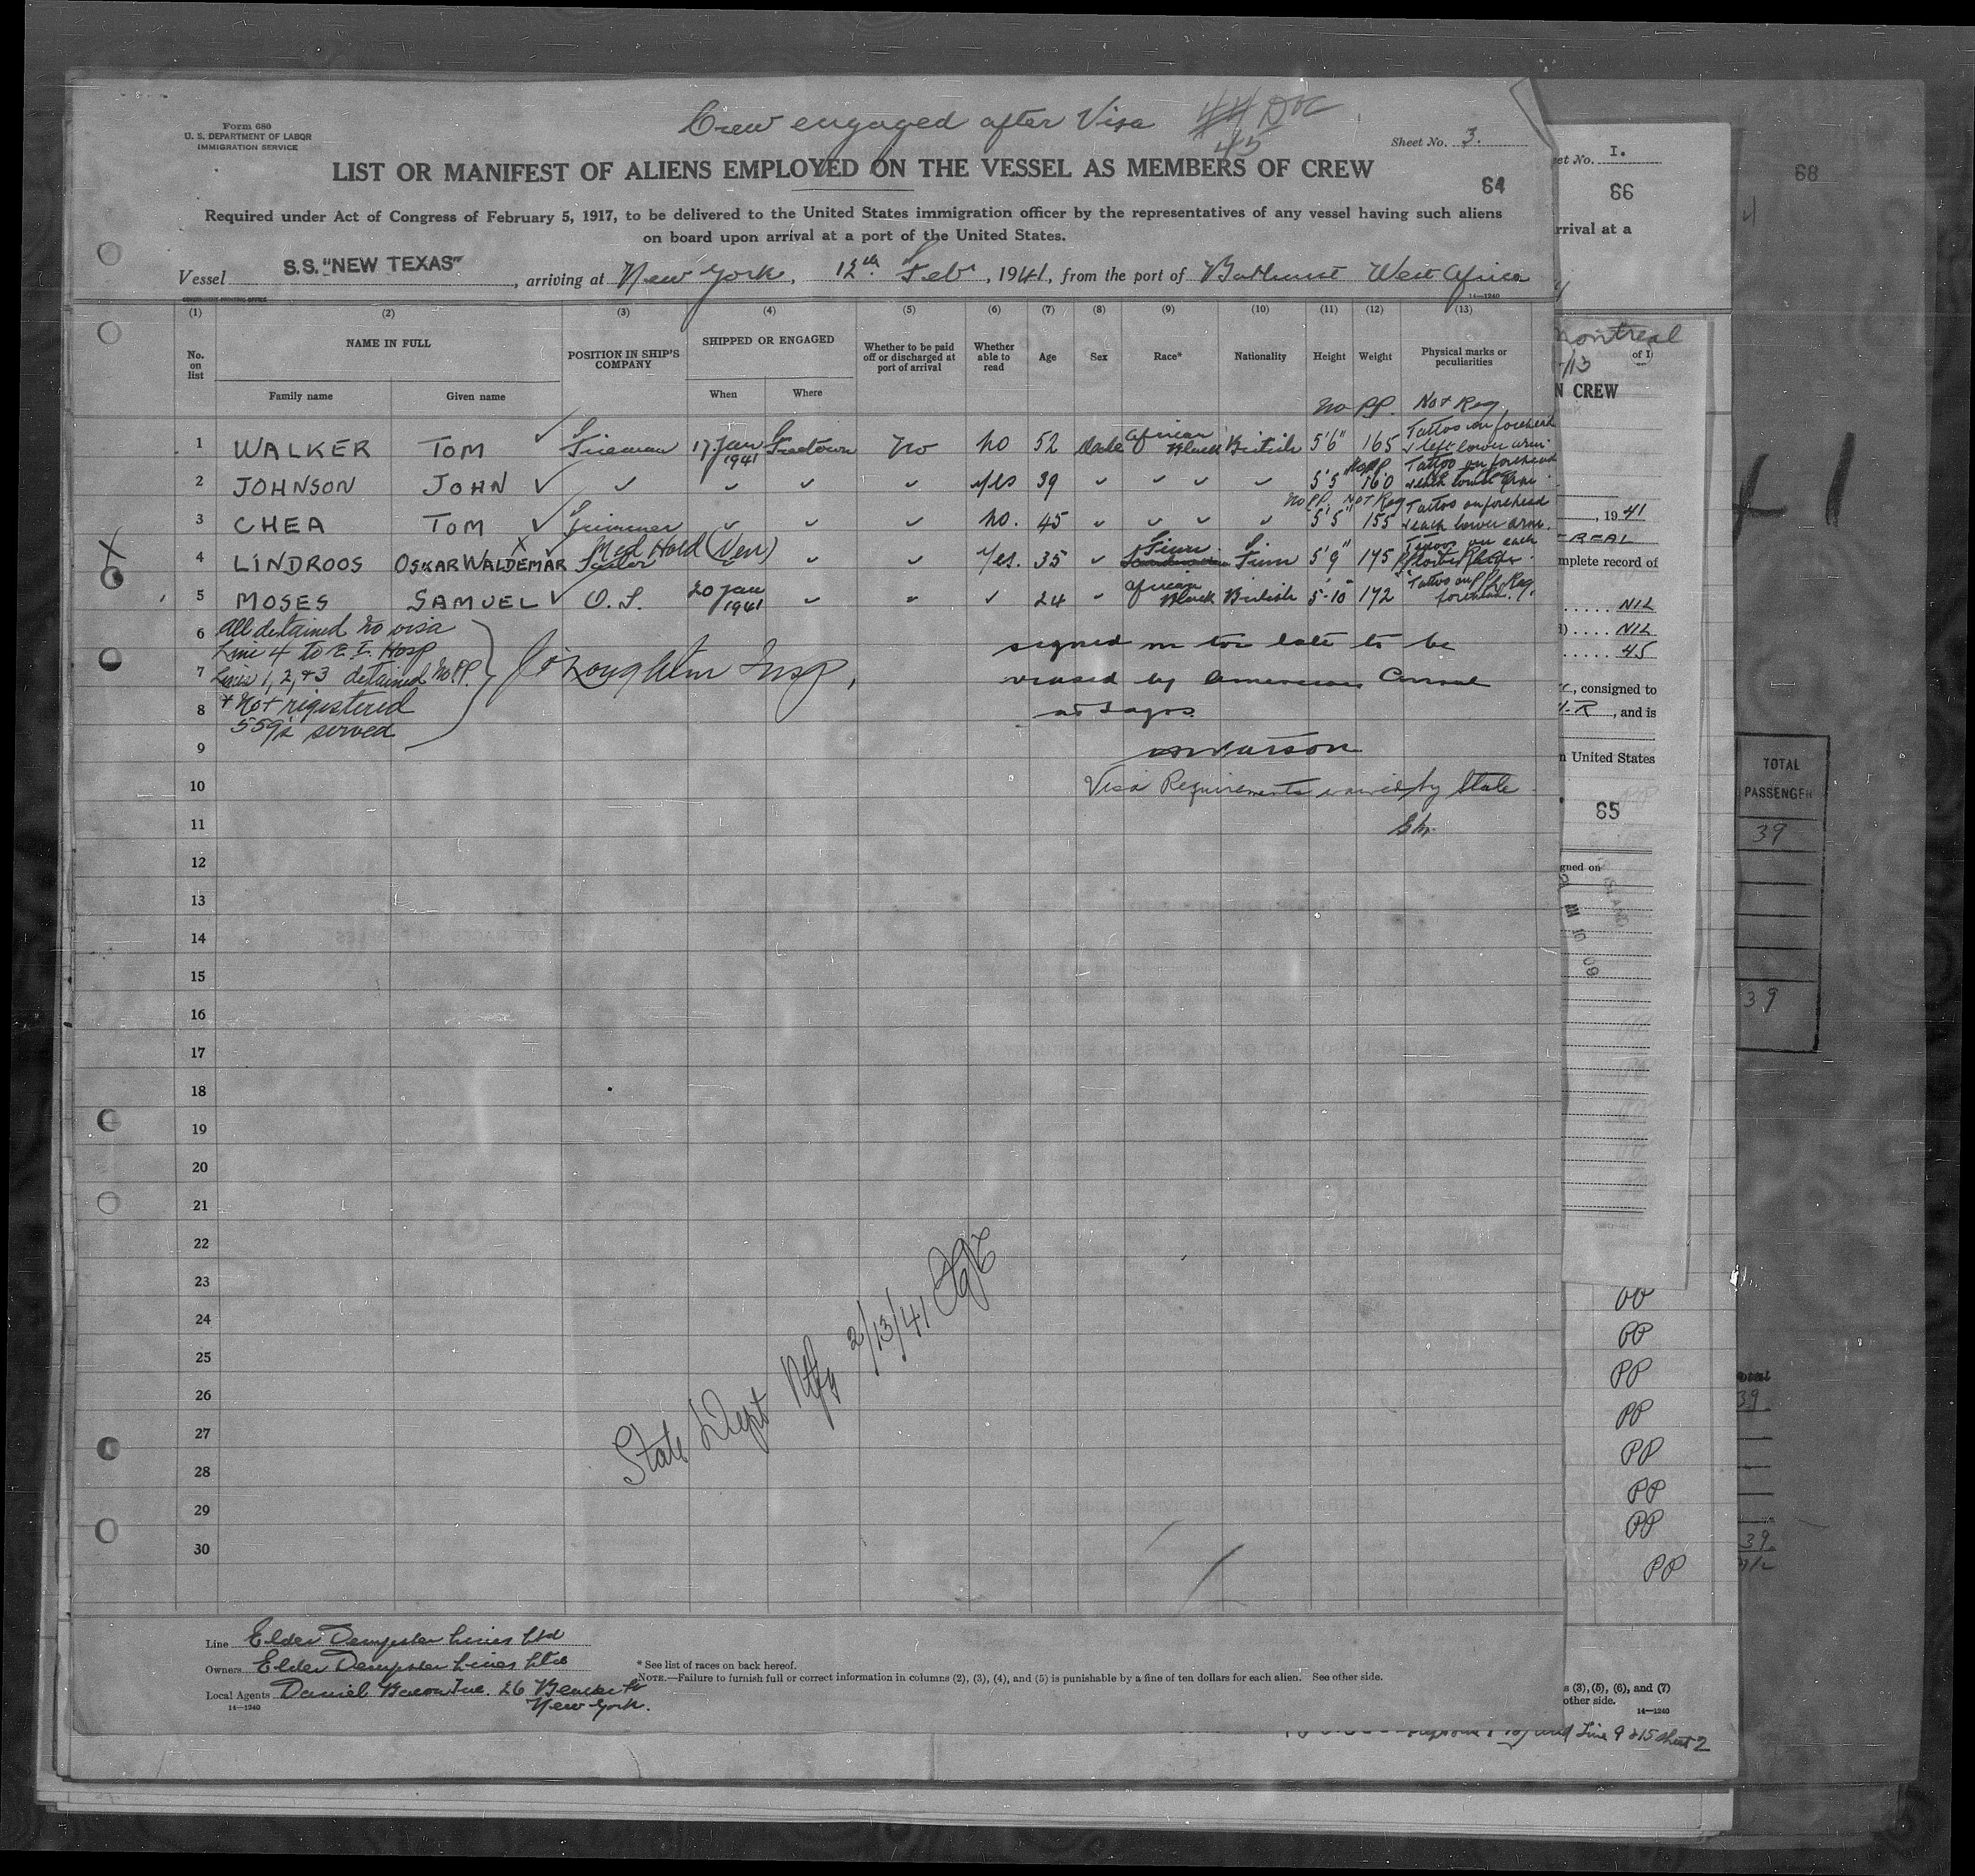 Crew engaged after Visa
45
Form 680
U. S. DEPARTMENT OF LABOR
IMMIGRATION SERVICE
Sheet No. 3.
LIST OR MANIFEST OF ALIENS EMPLOYED ON THE VESSEL AS MEMBERS OF CREW
64
Required under Act of Congress of February 5, 1917, to be delivered to the United States immigration officer by the representatives of any vessel having such aliens
on board upon arrival at a port of the United States.
Vessel S.S. "NEW TEXAS", arriving at New York, 12th Feb, 1941, from the port of Bathurst West Africa
14—1240
(1) (2) (3) (4) (5) (6) (7) (8) (9) (10) (11) (12) (13)
No. on list NAME IN FULL POSITION IN SHIP'S COMPANY SHIPPED OR ENGAGED Whether to be paid off or discharged at port of arrival Whether able to read Age Sex Race* Nationality Height Weight Physical marks or peculiarities
Family name Given name When Where
No PP. Not Reg
1 WALKER TOM Fireman 17 Jan 1941 Freetown no no 52 Male African Black British 5'6" 165 Tattoo on forehead & left lower arm.
2 JOHNSON JOHN yes 39 5'5 160 Tattoo on forehead & each lower arm
No PP. Not Reg
3 CHEA TOM Trimmer no. 45 5'5" 155 Tattoo on forehead & each lower arm.
4 LINDROOS OSKAR WALDEMAR Med Hold (Ven) Sailor Yes. 35 Finn Finn 5'9" 175 Tattoos on each
5 MOSES SAMUEL O.S. 20 Jan 1941 24 African Black British 5-10 172 Tattoo on forehead.
6 All detained no visa
Line 4 to E. I. Hosp
7 Lines 1, 2, & 3 detained no PP.
8 + Not registered
559's served
9
J O'Loughlin Insp,
signed on too late to be
visaed by American Consul
at Lagos
Visa Requirements waived by State
10
11
12
13
14
15
16
17
18
19
20
21
22
23
24
25
26
27
28
29
30
State Dept Ntfy 2/13/41
Line Elder Dempster Lines Ltd
Owners Elder Dempster Lines Ltd
Local Agents Daniel Bacon Inc. 26 Beaver St
New York.
14—1240
* See list of races on back hereof.
NOTE.—Failure to furnish full or correct information in columns (2), (3), (4), and (5) is punishable by a fine of ten dollars for each alien. See other side.
et No. I.
66
rrival at a
Montreal
/13
N CREW
, 1941
REAL
mplete record of
NIL
NIL
45
, consigned to
, and is
n United States
65
gned on
PP
PP
PP
PP
PP
PP
PP
PP
s (3), (5), (6), and (7)
other side.
14—1240
Line 9 & 15 sheet 2
68
41
TOTAL
PASSENGER
39
39
39
39